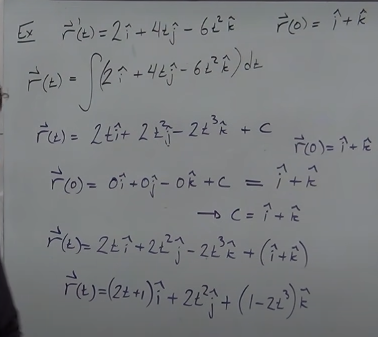 Ex r⃗'(t) = 2î + 4tĵ - 6t²k̂   r⃗(0) = î + k̂
r⃗(t) = ∫(2î + 4tĵ - 6t²k̂) dt
r⃗(t) = 2tî + 2t²ĵ - 2t³k̂ + C   r⃗(0) = î + k̂
r⃗(0) = 0î + 0ĵ - 0k̂ + C = î + k̂
→ C = î + k̂
r⃗(t) = 2tî + 2t²ĵ - 2t³k̂ + (î + k̂)
r⃗(t) = (2t+1)î + 2t²ĵ + (1-2t³)k̂